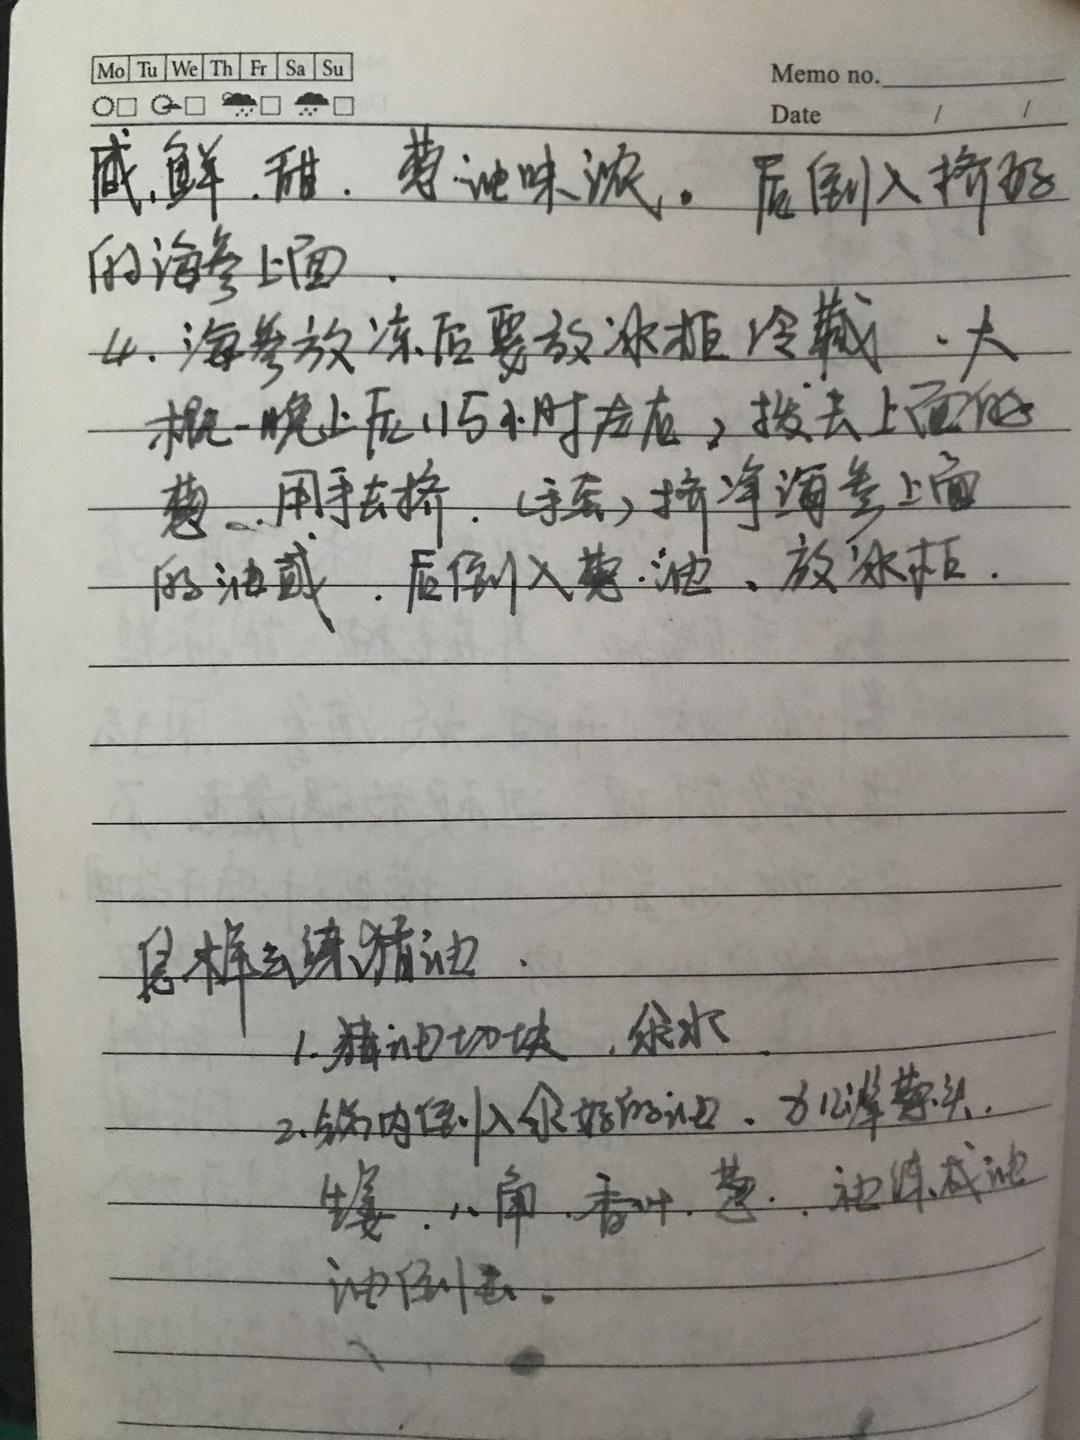 Mo Tu We Th Fr Sa Su
Memo no.
Date / /
咸.鲜.甜.葱油味浓。后倒入挤好
的海参上面.
4.海参放凉后要放冰柜冷藏.大
概一晚上后(15小时左右,拨去上面的
葱.用手去挤.(手套)挤净海参上面
的油
后倒入葱油.放冰柜.
怎样去练猪油.
1.猪油切块.氽水.
2.锅内倒入氽好的油.
生姜.八角.香叶.葱.油练成油
油倒去.